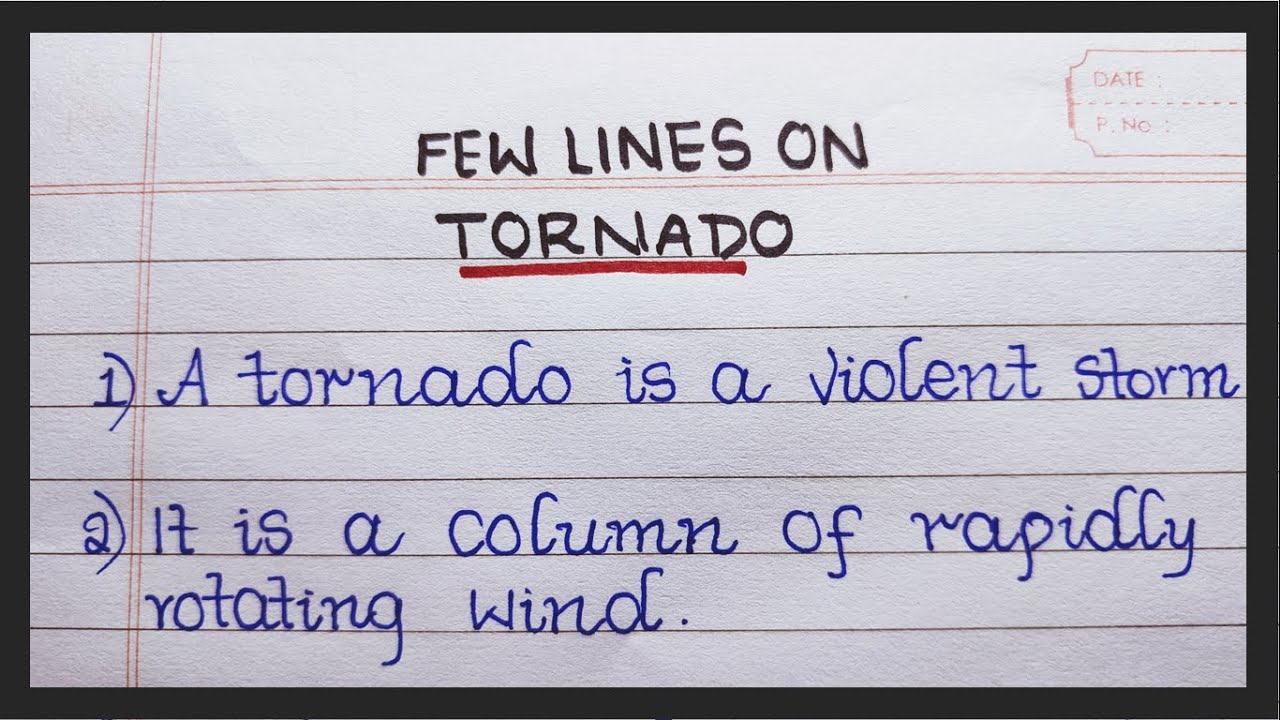 DATE :
P. NO :
FEW LINES ON
TORNADO
1) A tornado is a violent storm
2) It is a column of rapidly
rotating wind.